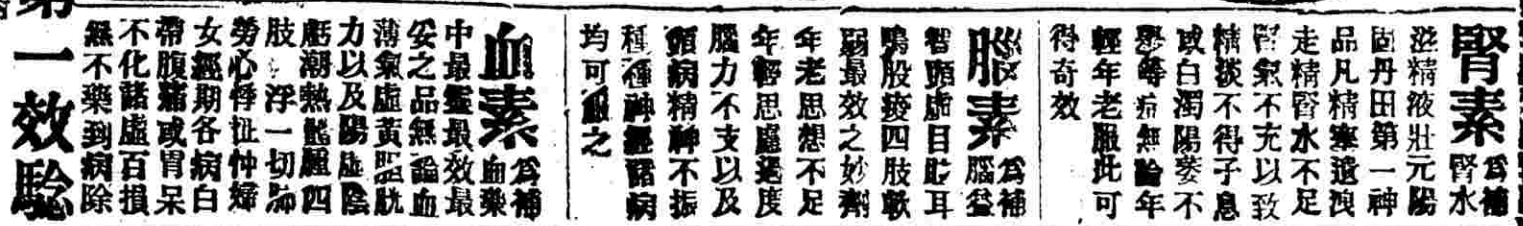 腎素 為補腎水
滋精液壯元陽
固丹田第一神
品凡精寒遺洩
走精腎水不足
腎氣不充以致
精淡不得子息
或白濁陽萎不
舉等症無論年
輕年老服此可
得奇效
腦素 為補腦益
智頭虛目眩耳
鳴股痠四肢軟
弱最效之妙劑
年老思想不足
年輕思慮過度
腦力不支以及
頭病精神不振
種種神經諸病
均可服之
血素 為補血藥
中最靈最效最
妥之品無論血
薄氣虛黃
力以及陽虛陰
虧潮熱腫四
肢浮一切肺
勞心悸怔忡婦
女經期各病白
帶腹痛或胃呆
不化諸虛百損
無不藥到病除
第一效驗